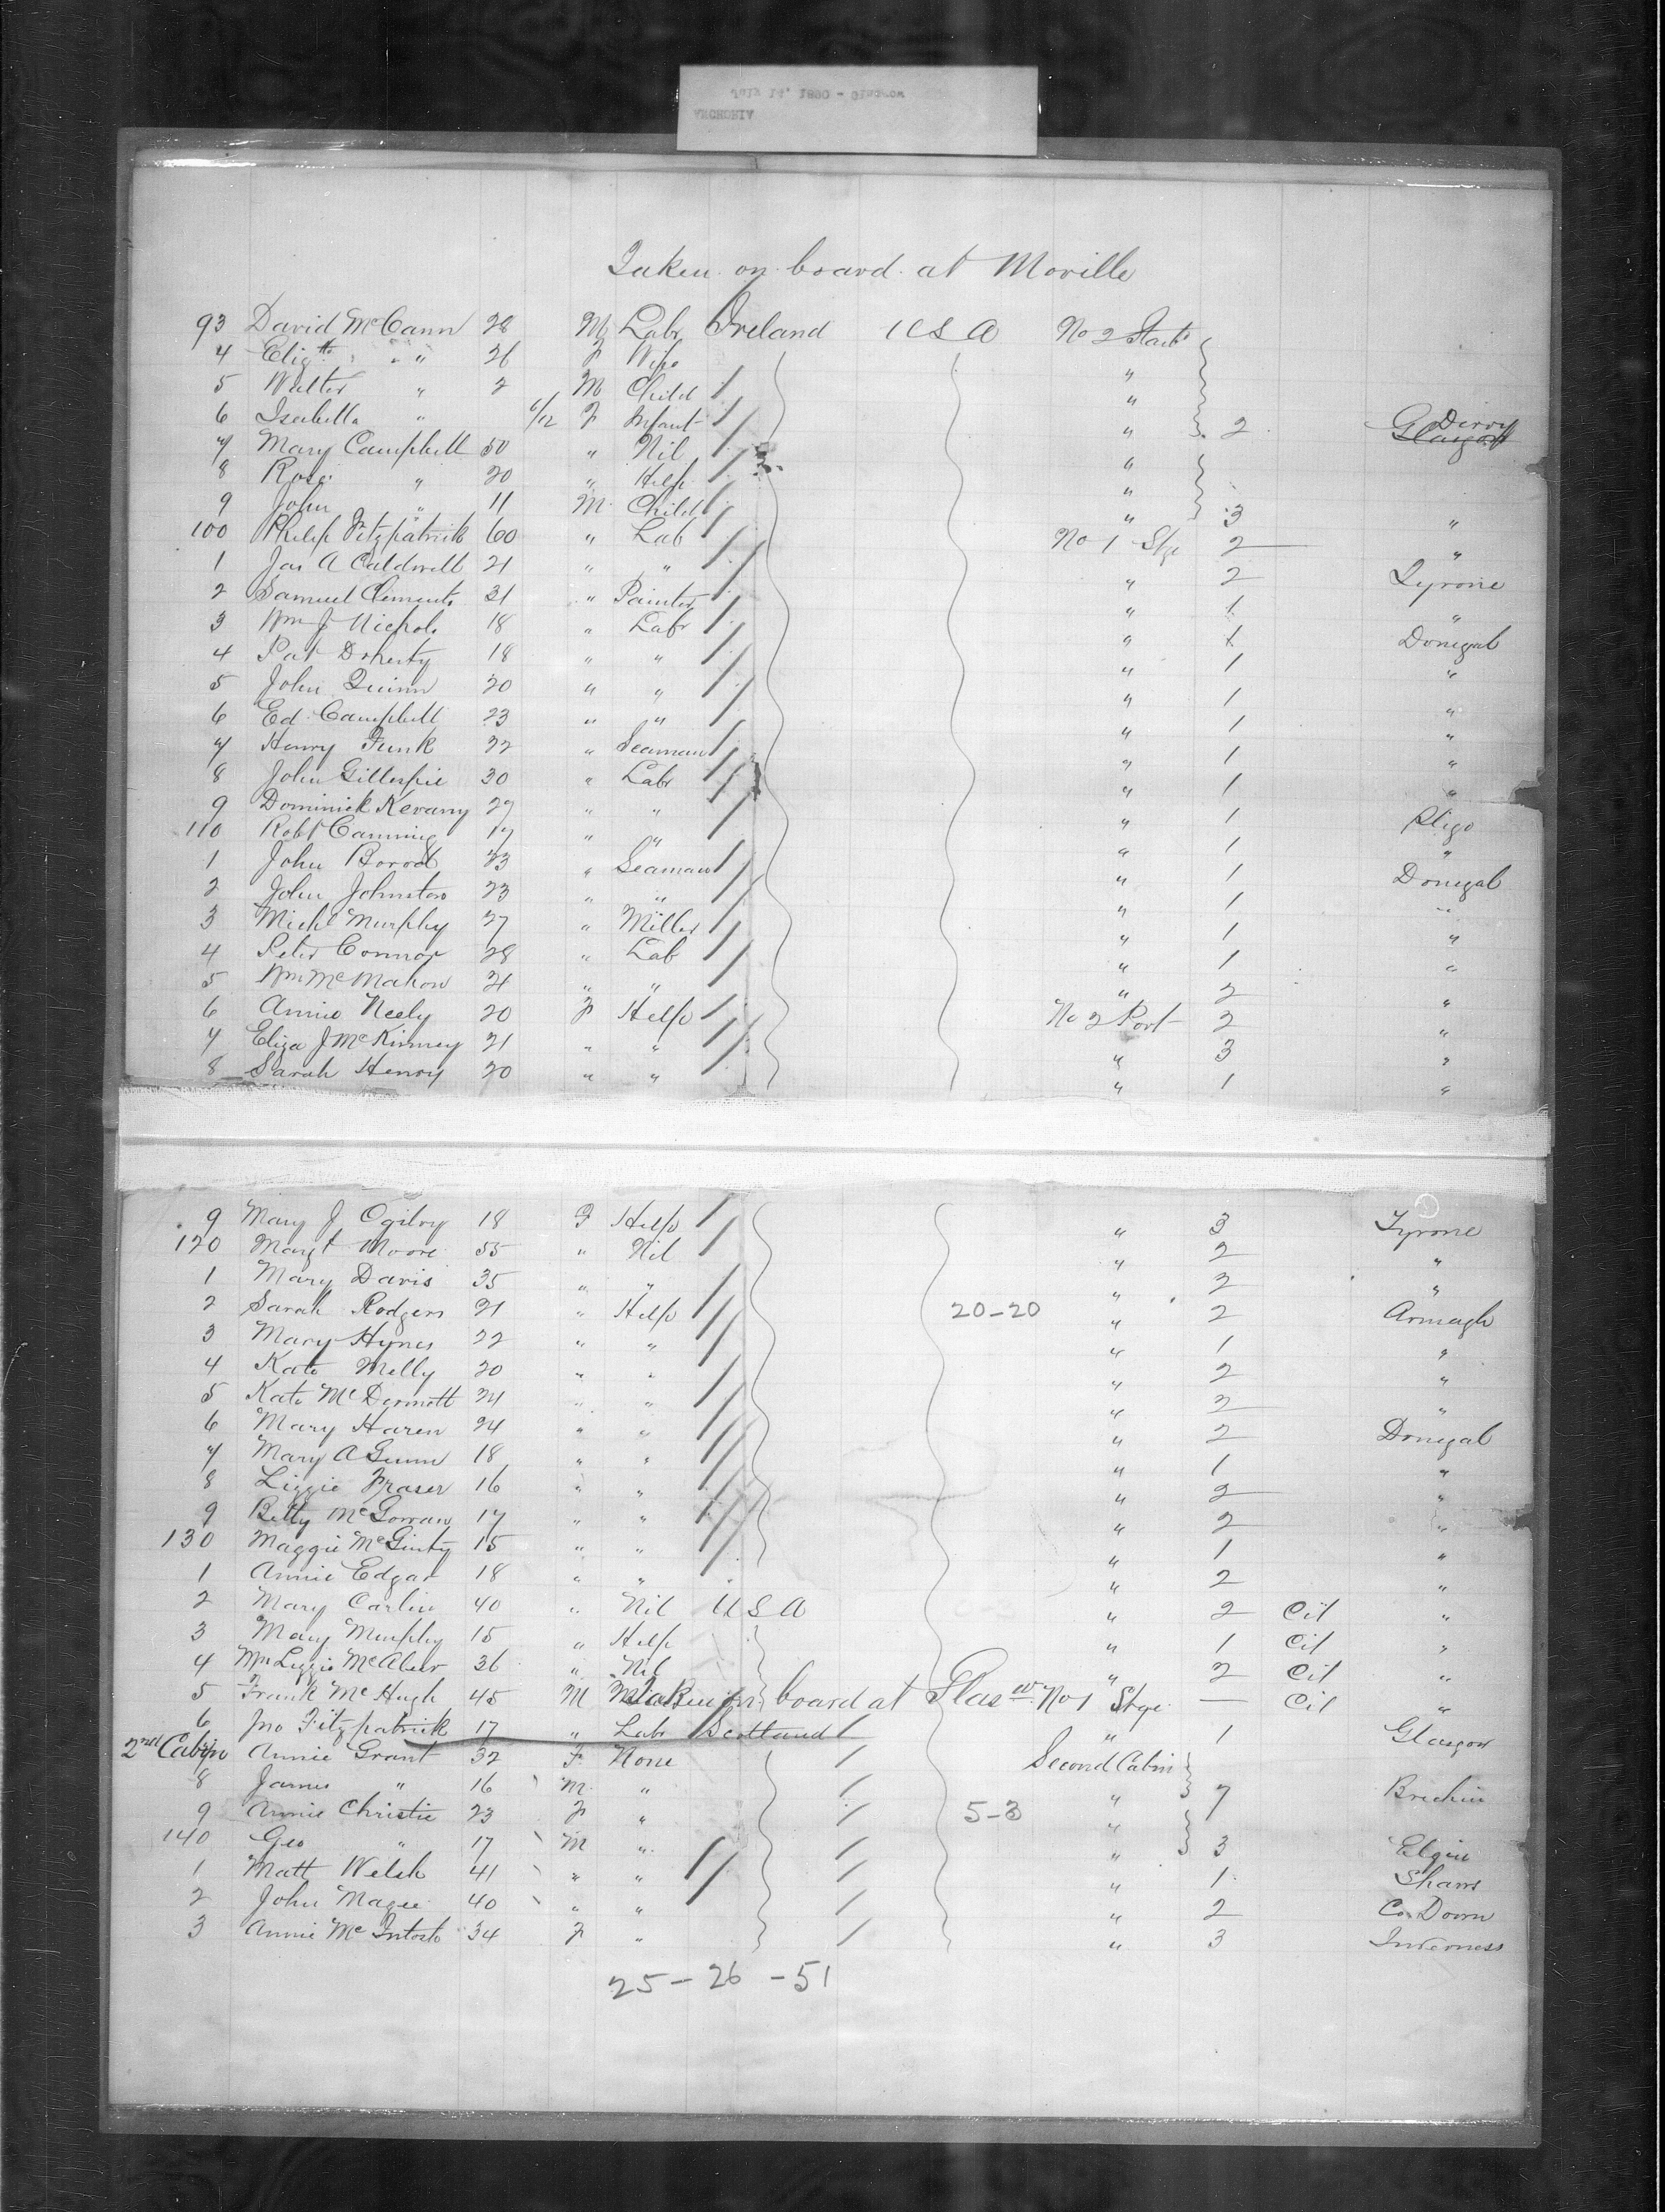 Taken on board at Moville
93 David McCann 28 M Labr Ireland USA No 2 Starb
4 Elizth " 26 F Wife "
5 Walter " 2 M Child "
6 Isabella " 6/12 F Infant " 2 Derry
7 Mary Campbell 50 " Nil "
8 Rose " 20 " Help "
9 John " 11 M Child " 3 "
100 Philip Fitzpatrick 60 " Lab No 1 Stge 2 "
1 Jas A Caldwell 21 " " " 2 Tyrone
2 Samuel Clements 31 " Painter " 1 "
3 Wm J Nichols 18 " Labr " 1 Donegal
4 Pat Doherty 18 " " " 1 "
5 John Quinn 20 " " " 1 "
6 Ed Campbell 23 " " " 1 "
7 Henry Funk 22 " Seaman " 1 "
8 John Gillespie 30 " Labr " 1 "
9 Dominick Kevany 27 " " " 1 Sligo
110 Robt Canning 17 " " " 1 "
1 John 23 " Seaman " 1 Donegal
2 John Johnston 23 " " " 1 "
3 Michl Murphy 27 " Miller " 1 "
4 Peter Connor 28 " Lab " 1 "
5 Wm McMahon 21 " " " 2 "
6 Annie Neely 20 F Help No 2 Port 2 "
7 Eliza J McKinney 21 " " " 3 "
8 Sarah Henry 20 " " " 1 "
9 Mary J Ogilvy 18 F Help " 3 Tyrone
120 Margt Moore 55 " Nil " 2 "
1 Mary Davis 35 " " " 2 "
2 Sarah Rodgers 21 " Help 20-20 " 2 Armagh
3 Mary Hynes 22 " " " 1 "
4 Kate Melly 20 " " " 2 "
5 Kate McDermott 24 " " " 2 "
6 Mary Haren 24 " " " 2 Donegal
7 Mary A Gunn 18 " " " 1 "
8 Lizzie Fraser 16 " " " 2 "
9 Betty McGowan 17 " " " 2 "
130 Maggie McGinty 15 " " " 1 "
1 Annie Edgar 18 " " " 2 "
2 Mary Carlin 40 " Nil USA " 2 Cit "
3 Mary Murphy 15 " Help " 1 Cit "
4 Lizzie 36 " Nil " 2 Cit "
5 Frank McHugh 45 M No 1 Stge — Cit "
Taken on board at Glasow
6 Jno Fitzpatrick 17 " Labr Scotland " 1 Glasgow
2nd Cabin 7 Annie Grant 32 F None Second Cabin
8 James " 16 M " " 7 Brechin
9 Annie Christie 23 F " 5-3 "
140 Geo " 17 M " " 3 Elgin
1 Matt Welsh 41 " " " 1 Shaws
2 John Magee 40 " " " 2 Co. Down
3 Annie McIntosh 34 F " " 3 Inverness
25-26-51